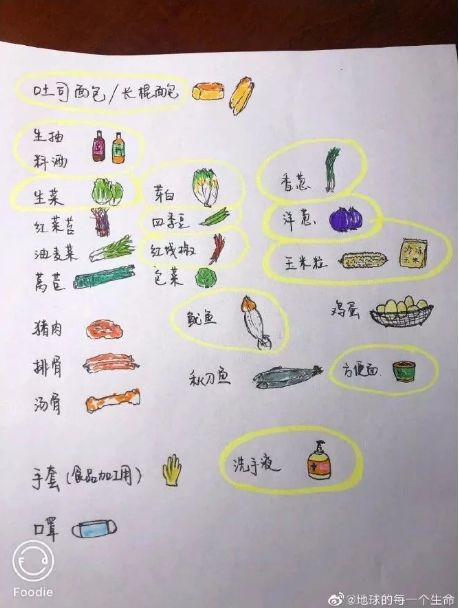 吐司面包/长棍面包
生抽
料酒
生菜 芽白 香葱
红菜苔 四季豆 洋葱
油麦菜 红线椒 玉米粒
莴苣 包菜
猪肉 鱿鱼 鸡蛋
排骨 秋刀鱼 方便面
汤骨
手套(食品加工用) 洗手液
口罩
Fd
Foodie
@地球的每一个生命